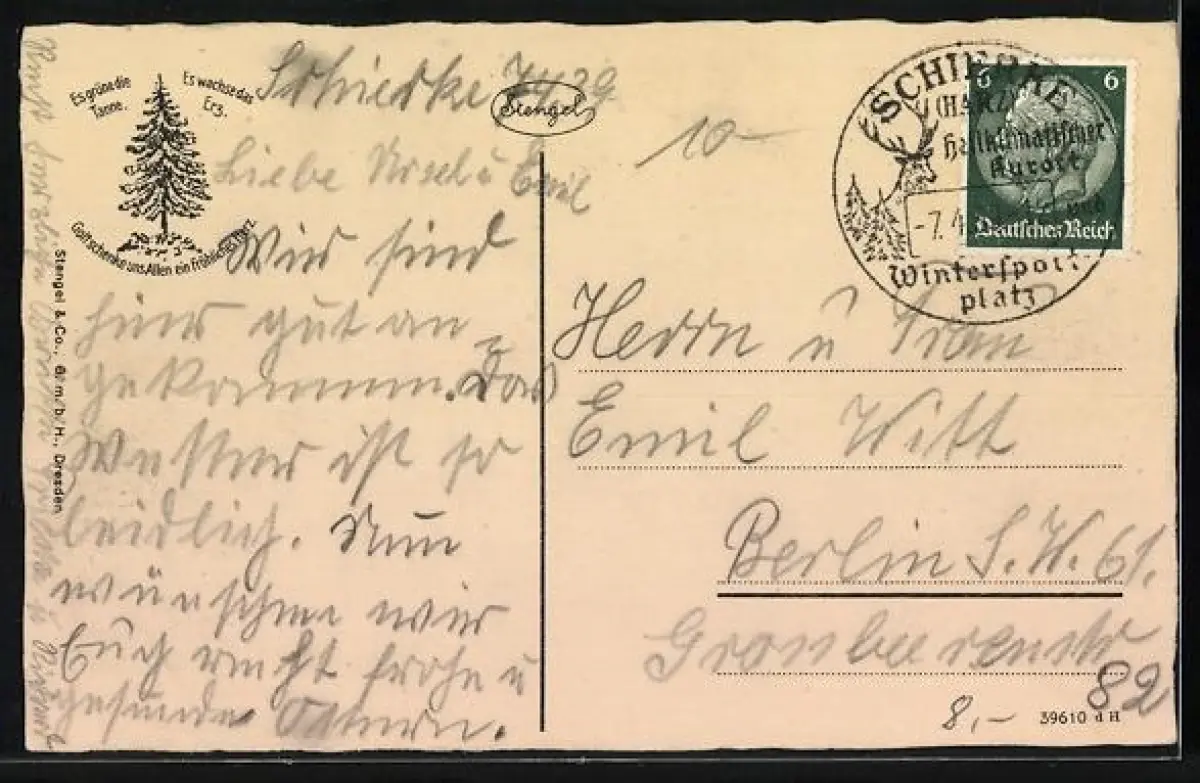 Es grüne die
Tanne.
Es wachse das
Erz.
Gott schenke uns Allen ein fröhliches Herz.
Stengel & Co., G.m.b.H., Dresden
Stengel
Schierke 7.4.39
Liebe Ursel u Emil
Wir sind
hier gut an
gekommen. Das
Wetter ist so
leidlich. Nun
wünschen wir
Euch recht frohe u
gesunde Ostern.
10-
SCHIERKE
(HARZ)
heilklimatischer
Kurort
-7.4
Wintersport
platz
6 6
Deutsches Reich
Herrn u Frau
Emil Witt
Berlin S.W. 61.
Grosbeerenstr
82
8,-
39610 d H